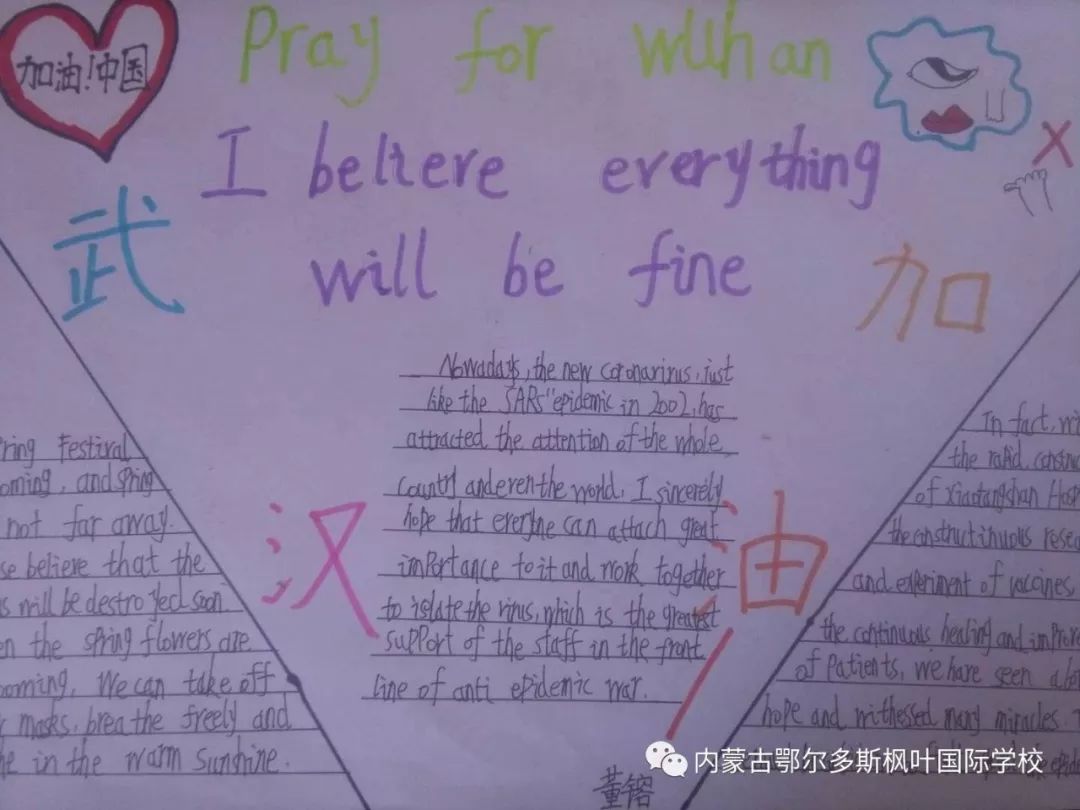 加油!中国
Pray for wuhan
I believe everything
will be fine
武
加
汉
油
Nowadays, the new coronavirus, just
like the "SARs" epidemic in 2002, has
attracted the attention of the whole
country and even the world. I sincerely
hope that everyone can attach great
importance to it and work together
to islate the virus, which is the greatest
support of the staff in the front
line of anti epidemic war.
ring Festival
oming, and spring
not far away.
se believe that the
s will be destroyed soon
en the spring flowers are
ooming. We can take off
masks, breathe freely and
in the warm sunshine.
In fact, wi
the rapid constru
of xiaotangshan Hos
the constructinuous resea
and experiment of vaccines,
the continuous healing and improve
of Patients, we have seen a lot
hope and withessed many miracles.
epide
董镕
内蒙古鄂尔多斯枫叶国际学校